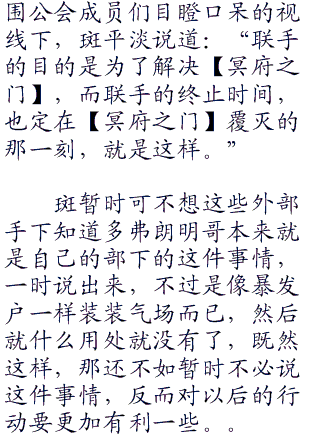 围公会成员们目瞪口呆的视
线下，斑平淡说道：“联手
的目的是为了解决【冥府之
门】，而联手的终止时间，
也定在【冥府之门】覆灭的
那一刻，就是这样。”
斑暂时可不想这些外部
手下知道多弗朗明哥本来就
是自己的部下的这件事情，
一时说出来，不过是像暴发
户一样装装气场而已，然后
就什么用处就没有了，既然
这样，那还不如暂时不必说
这件事情，反而对以后的行
动要更加有利一些。。